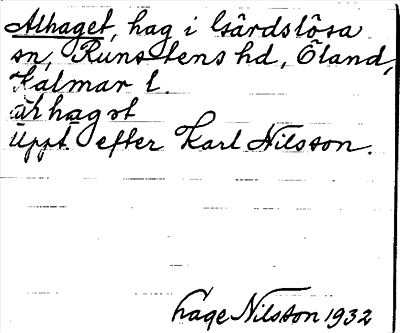 Alhaget, hag i Gärdslösa
sn, Runstens hd, Öland,
Kalmar l.
ɑ̀ɬhagət
Uppt. efter Karl Nilsson.
Hage Nilsson 1932